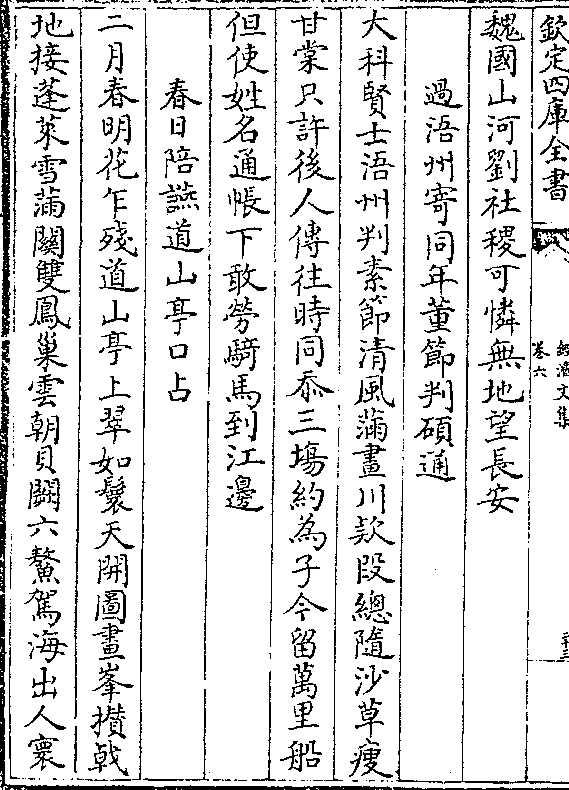 欽定四庫全書
經濟文集
卷六
魏國山河劉社稷可憐無地望長安
過浯州寄同年董節判碩通
大科賢士浯州判素節清風滿畫川欵段總隨沙草瘦
甘棠只許後人傳往時同忝三塲約為子今留萬里船
但使姓名通帳下敢勞騎馬到江邊
春日陪讌道山亭口占
二月春明花乍殘道山亭上翠如鬟天開圖畫峯攢戟
地接蓬萊雪滿關雙鳳巢雲朝貝闕六鰲駕海出人寰